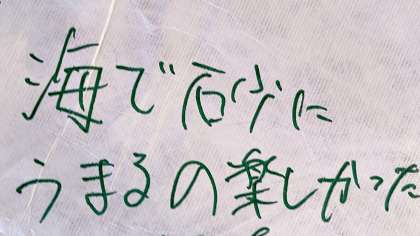 海で砂に
うまるの楽しかった